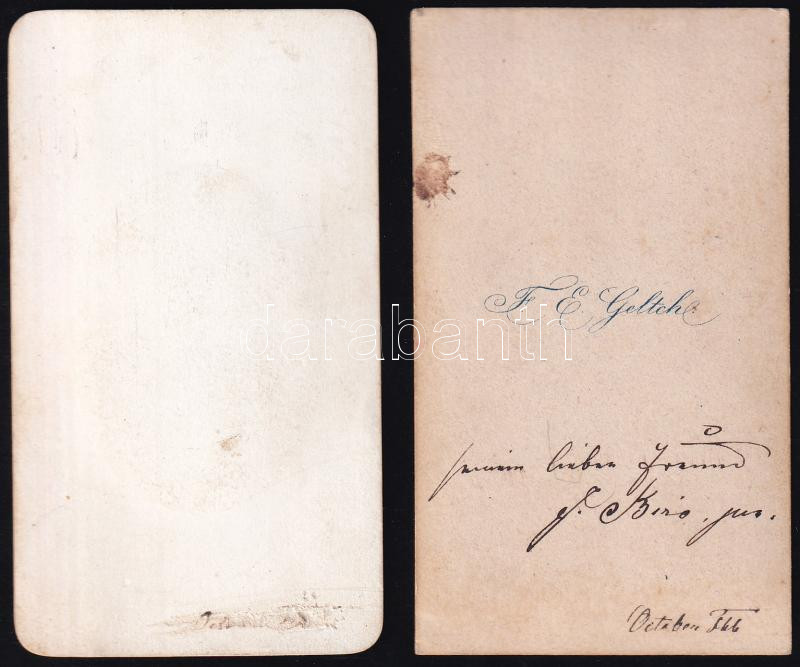 F. E. Geltch
darabanth
seinem lieben Freund
J. Biro, jun.
October